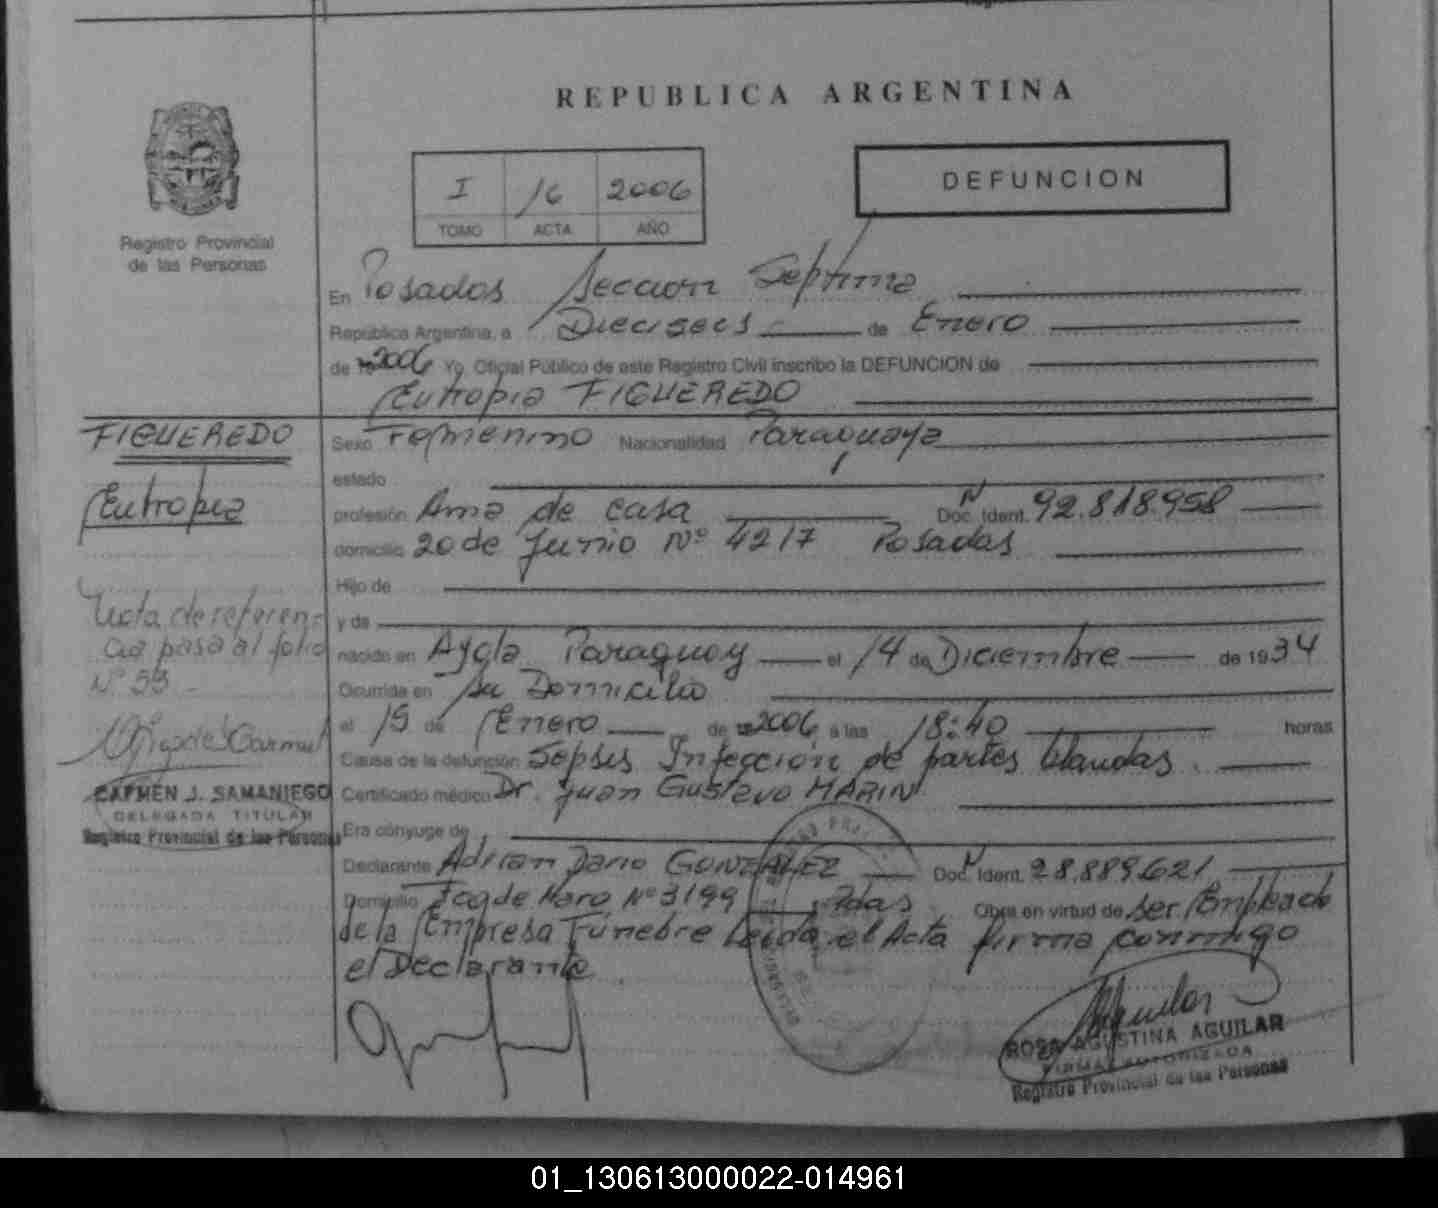 REPUBLICA ARGENTINA
I 16 2006
TOMO ACTA AÑO
DEFUNCION
Registro Provincial
de las Personas
En Posadas Sección Septima
República Argentina, a Dieciseis de Enero
de 2006 Yo, Oficial Público de este Registro Civil inscribo la DEFUNCION de
Eutropia FIGUEREDO
FIGUEREDO
Eutropia
Nota de referen-
cia pasa al folio
Nº 53
CARMEN J. SAMANIEGO
DELEGADA TITULAR
Registro Provincial de las Personas
Sexo Femenino Nacionalidad Paraguaya
estado
profesión Ama de casa Doc. Ident. 92.818.958
domicilio 20 de Junio Nº 4217 Posadas
Hijo de
y de
nacido en Paraguay el 14 de Diciembre de 1934
Ocurrida en su Domicilio
el 15 de Enero de 2006 a las 18:40 horas
Causa de la defunción Sepsis Infección de partes blandas.
Certificado médico Dr. Juan Gustavo MARIN
Era cónyuge de
Declarante Adrian Dario GONZALEZ Doc. Ident. 28.889.621
Domicilio Fco de Haro Nº 3199 Pdas Obra en virtud de ser Empleado
de la Empresa Fúnebre Leida el Acta firma conmigo
el Declarante
ROSA AGUSTINA AGUILAR
FIRMA AUTORIZADA
Registro Provincial de las Personas
01_130613000022-014961